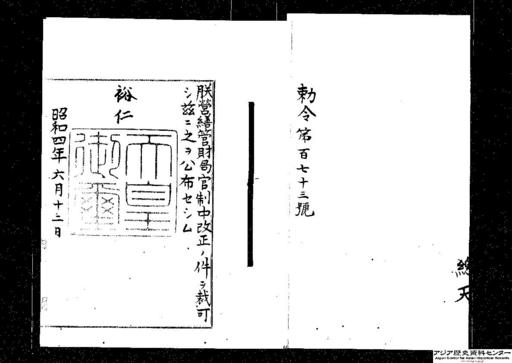 勅令第百七十三號
朕營繕管財局官制中改正ノ件ヲ裁可
シ茲ニ之ヲ公布セシム
裕仁
天皇
御璽
昭和四年六月十二日
アジア歴史資料センター
Japan Center for Asian Historical Records